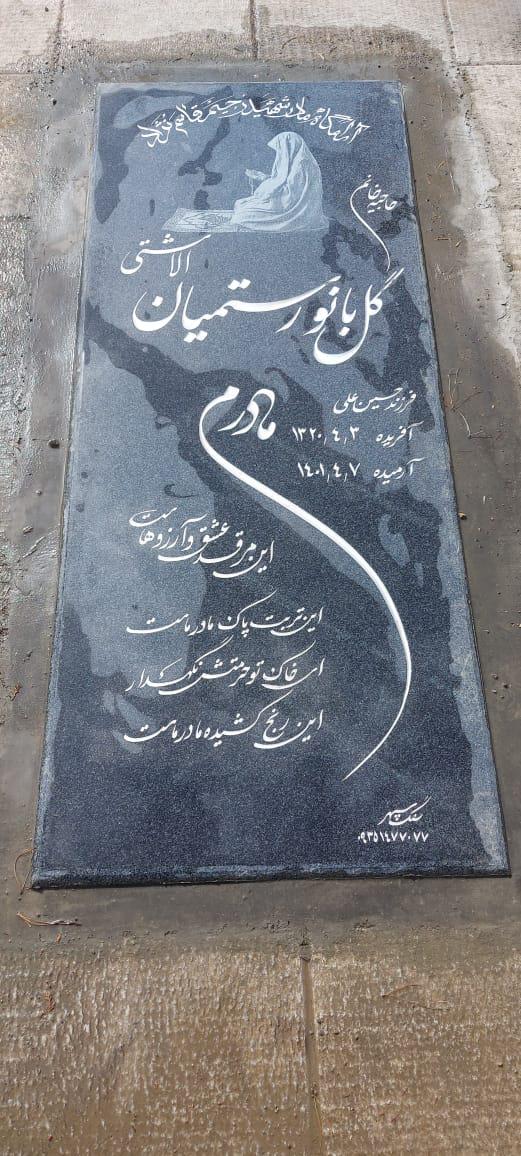 آرامگاه مادر شهید رحیم قاسم نژاد
حاجیه خانم
گل بانو رستمیان
الاشتی
فرزند حسین علی
آفریده ۱۳۲۰٫۴٫۳
آرمیده ۱۴۰۱٫۴٫۷
مادرم
این مرقد عشق و آرزوهاست
این تربت پاک مادر ماست
ای خاک تو حرمتش نگهدار
این رنج کشیده مادر ماست
سنگ سپهر
۰۹۳۵۱۴۷۷۰۷۷